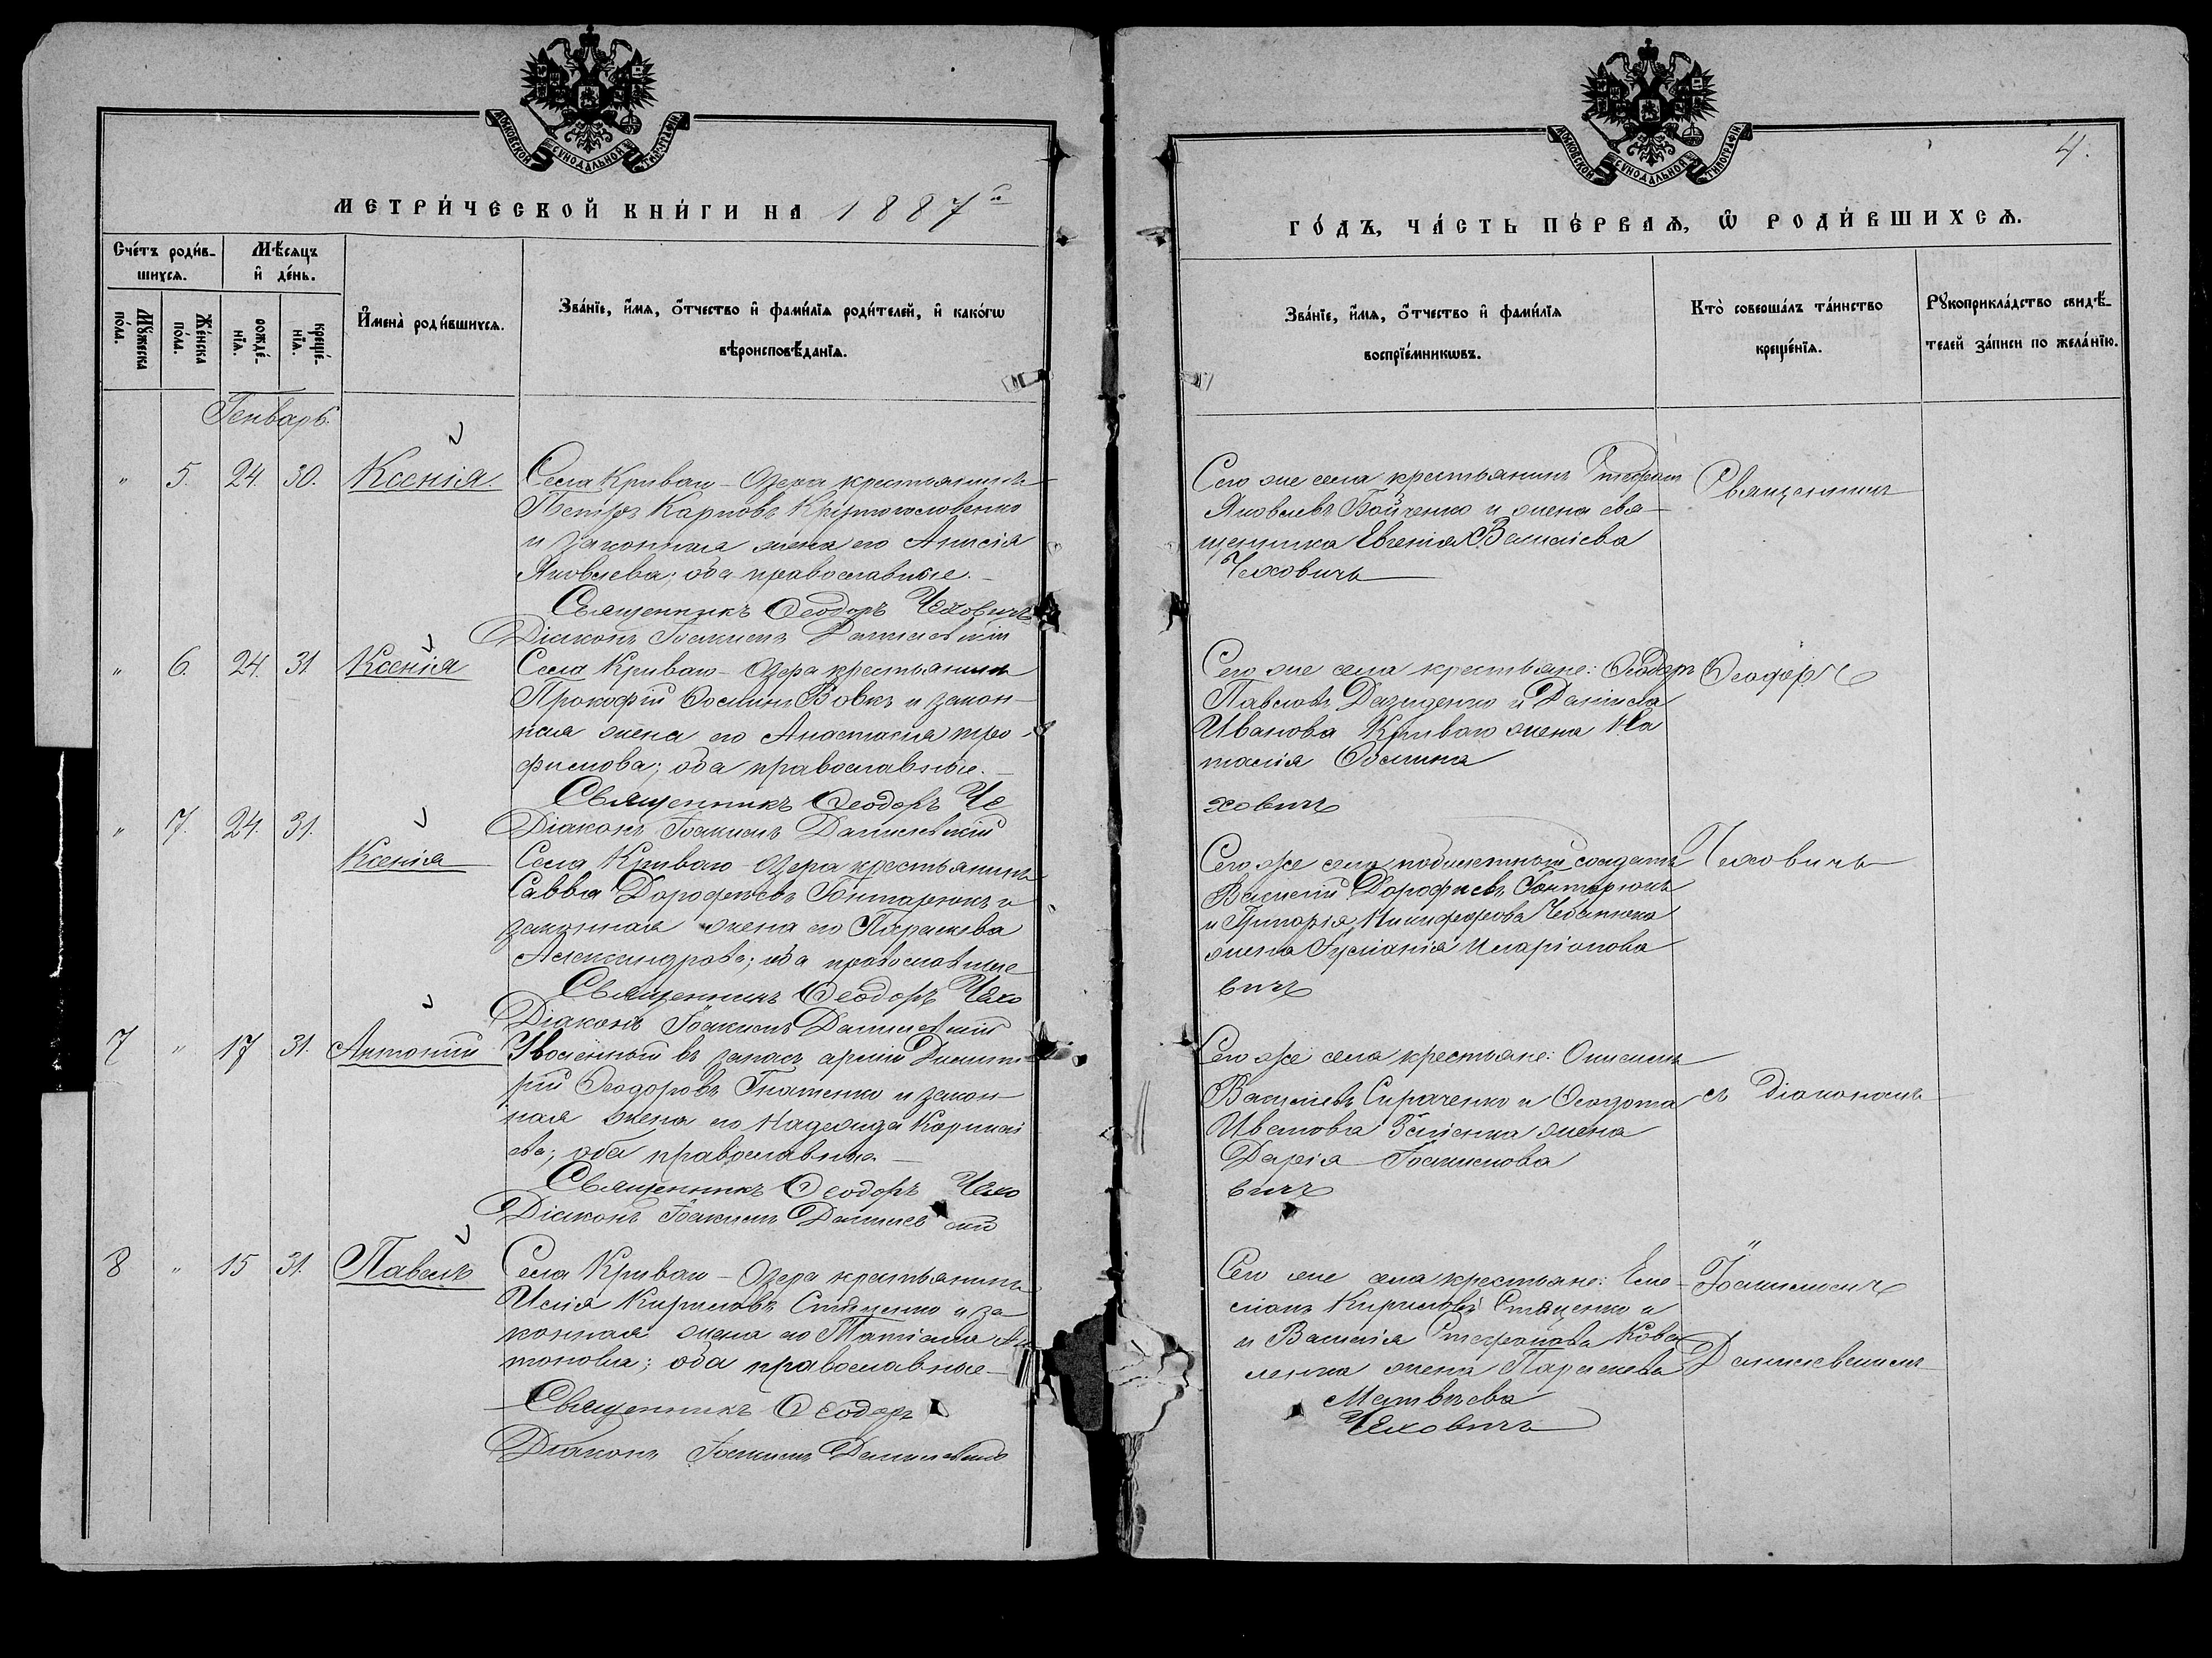 МОСКОВСКОЙ СУНОДАЛЬНОЙ ТИПОГРАФІИ
МЕТРИ́ЧЕСКОЙ КНИ́ГИ НА 1887й
Сче́тъ роди́в-
шихся.
Мѣ́сяцъ
и҆ де́нь.
Мꙋ́жеска по́ла.
Же́нска по́ла.
рожде́-
нїѧ.
креще́-
нїѧ.
И҆мена̀ роди́вшихсѧ.
Зва́нїе, и҆́мѧ, ѻ҆́тчество и҆ фами́лїѧ роди́телей, и҆ како́гѡ
вѣроисповѣ́данїѧ.
Генварь.
" 5. 24. 30. Ксенія
Села Криваго-Озера крестьянинъ
Петръ Карповъ
и законная жена его Анисія
Яковлева; оба православные.
Священникъ Ѳеодоръ Чеховичъ
Діаконъ Іоакимъ Данилевскій
" 6. 24. 31 Ксенія
Села Криваго-Озера крестьянинъ
Прокофій Ѳоминъ Вовкъ и закон-
ная жена его Анастасия тро-
фимова; оба православные.
Священникъ Ѳеодоръ Че
Діаконъ Іоакимъ Данилевскій
" 7. 24. 31.
Ксенія
Села Криваго-Озера крестьянинъ
Савва Дорофѣевъ Гонтарюкъ и
законная жена его Параскева
Александрова; оба православные
Священникъ Ѳеодоръ Чехо
Діаконъ Іоакимъ Данилевскій
7 " 17 31. Антоній
Уволенный въ запасъ арміи Димит-
рій Ѳеодоровъ Гнатенко и закон-
ная жена его Надежда Корниліе
ева; оба православные.
Священникъ Ѳеодоръ Чехо
Діаконъ Іоакимъ Данилевскій
8 " 15 31. Павелъ
Села Криваго-Озера крестьянинъ
Илія Кириловъ Стаценко и за
конная жена его Татіана Ан
тонова; оба православные
Священникъ Ѳеодоръ
Діаконъ Іоакимъ Данилевскій
МОСКОВСКОЙ СУНОДАЛЬНОЙ ТИПОГРАФІИ
4.
ГО́ДЪ, ЧА́СТЬ ПЕ́РВАѦ, Ѡ҆ РОДИ́ВШИХСѦ.
Зва́нїе, и҆́мѧ, ѻ҆́тчество и҆ фами́лїѧ
воспрїе́мникѡвъ.
Кто̀ соверша́лъ та́инство
креще́нїѧ.
Рꙋкоприкла́дство свидѣ́-
телей за́писи по жела́нїю.
Сего же села крестьянинъ Стефанъ
Яковлевъ Бойченко и жена свя-
щенника Евгенія Василіева
Чеховичъ
Священникъ
Сего же села крестьяне: Ѳеодоръ
Павловъ Дазиденко и Данила
Иванова Криваго жена На
талія Ѳомина
ховичъ
Ѳеодоръ
Сего же села побилетный солдатъ
Василій Дорофѣевъ Гонтарюкъ
и Григорія Никифорова Чебанюка
жена Іуліанія Иларіонова
вичъ
Чеховичъ
Сего же села крестьяне: Онисимъ
Василіевъ Сираченко и Ѳеодота
Иванова жена
Дарія Іоакимова
вичъ
съ Діакономъ
Сего же села крестьяне: Еме-
ліанъ Кириловъ Стаценко и
и Василія Стефанова Кова
ленка жена Параскева
Матвѣева
Чеховичъ
Іоакимомъ
Данилевскимъ